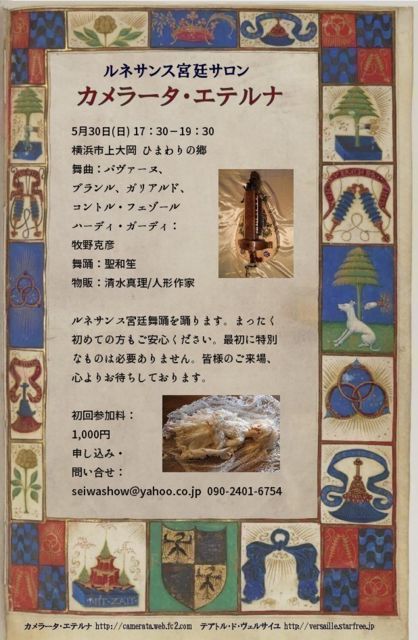 ルネサンス宮廷サロン
カメラータ・エテルナ
5月30日(日) 17：30－19：30
横浜市上大岡 ひまわりの郷
舞曲：パヴァーヌ、
ブランル、ガリアルド、
コントル・フェゾール
ハーディ・ガーディ：
牧野克彦
舞踊：聖和笙
物販：清水真理/人形作家
ルネサンス宮廷舞踊を踊ります。まったく
初めての方もご安心ください。最初に特別
なものは必要ありません。皆様のご来場、
心よりお待ちしております。
初回参加料：
1,000円
申し込み・
問い合せ：
seiwashow@yahoo.co.jp 090-2401-6754
カメラータ・エテルナ http://camerata.web.fc2.com テアトル・ド・ヴェルサイユ http://versaille.starfree.jp